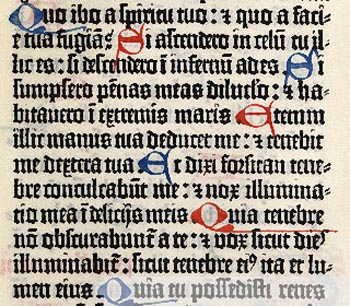 Quo ibo a spiritu tuo: ⁊ quo a faci-
e tua fugiā? Si ascendero in celū tu il-
lic es: si descendero ī infernū ades. Si
sumpsero pēnas meas diluculo: ⁊ ha-
bitavero ī extremis maris. Etenim
illic manus tua deducet me: ⁊ tenebit
me dextera tua. Et dixi forsitan tene-
bre conculcabūt me: ⁊ nox illumina-
tio mea ī delicijs meis. Quia tenebre
nō obscurabunt̄ a te: ⁊ nox sicut dieſ
illuminabit̄: sicut tenebre eiꝰ ita et lu-
men eius. Quia tu possedisti renes